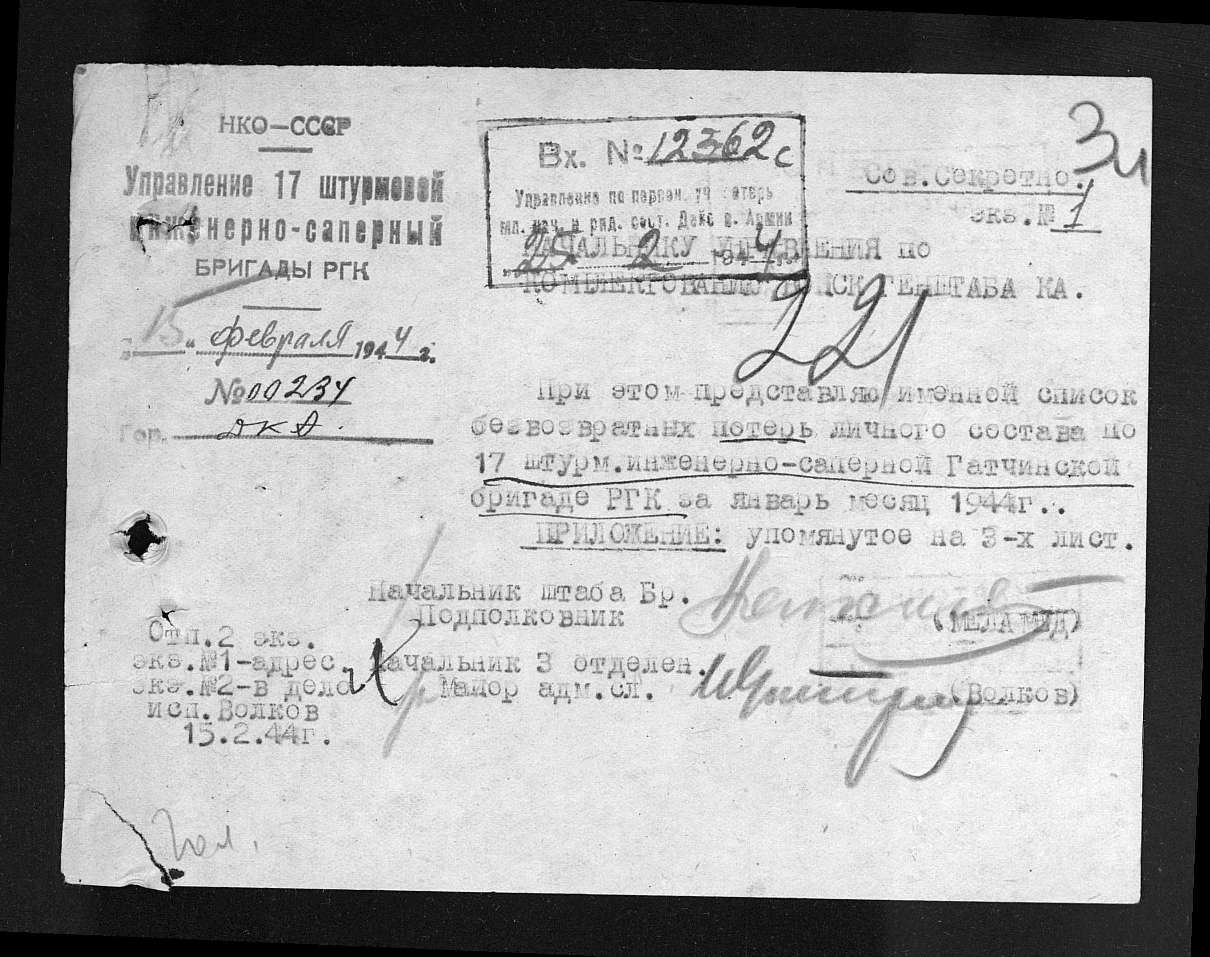 НКО—СССР
Управление 17 штурмовой
инженерно-саперный
БРИГАДЫ РГК
"15" февраля 1944 г.
№00234
Гор. ДКА.
Вх. № 12362с
Управление по персон. уч потерь
мл. нач. и ряд. сост. Дейс в. Армии
"25" 2 1944 г.
3 л
Сов.Секретно.
экз.№1
НАЧАЛЬНИКУ УПРАВЛЕНИЯ по
КОМПЛЕКТОВАНИЮ ВОЙСК ГЕНШТАБА КА.
221
При этом представляю именной список
безвозвратных потерь личного состава по
17 штурм.инженерно-саперной Гатчинской
бригаде РГК за январь месяц 1944г..
ПРИЛОЖЕНИЕ: упомянутое на 3-х лист.
Начальник штаба Бр.
Подполковник
(МЕЛАМИД)
Начальник 3 отделен.
Майор адм.сл.
(Волков)
Отп.2 экз.
экз.№1-адрес.
экз.№2-в дело
исп.Волков
15.2.44г.